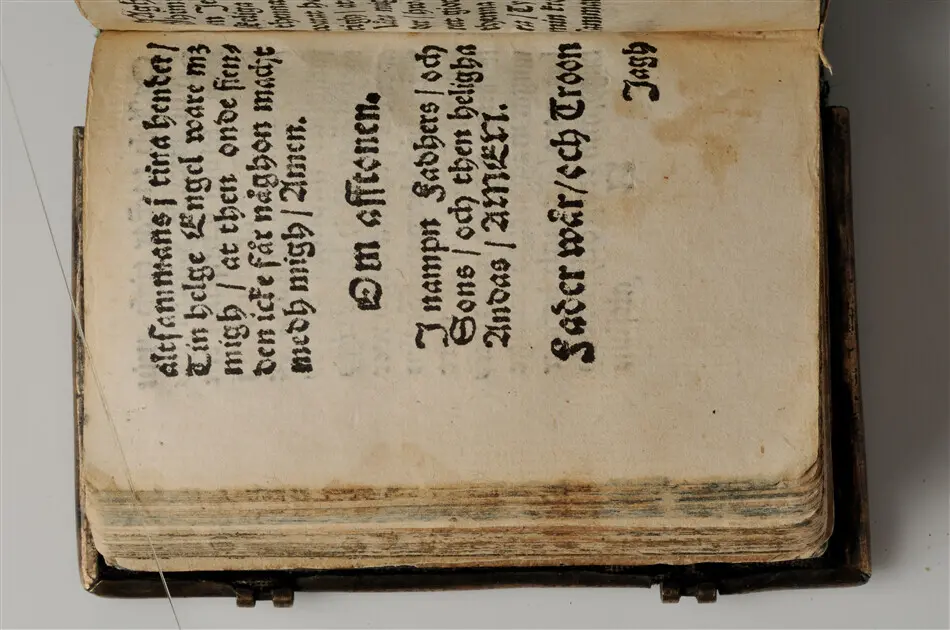 altsammans i tina hender /
Tin helge Engel ware mz
migh / at then onde fien⸗
den icke får någhon macht
medh migh / Amen.
Om afftonen.
J nampn Fadhers / och
Sons / och then heligha
Andas / AMEN.
Fader wår / och Troon
Jagh